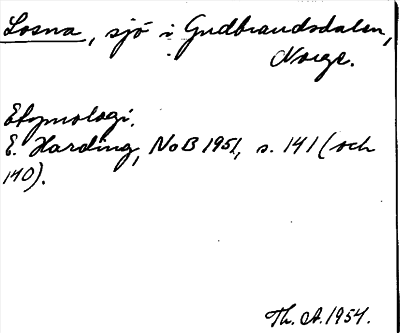 Losna, sjö i Gudbrandsdalen,
Norge.
Etymologi.
E. Harding, NoB 1951, s. 141 (och
140).
Th. A. 1954.